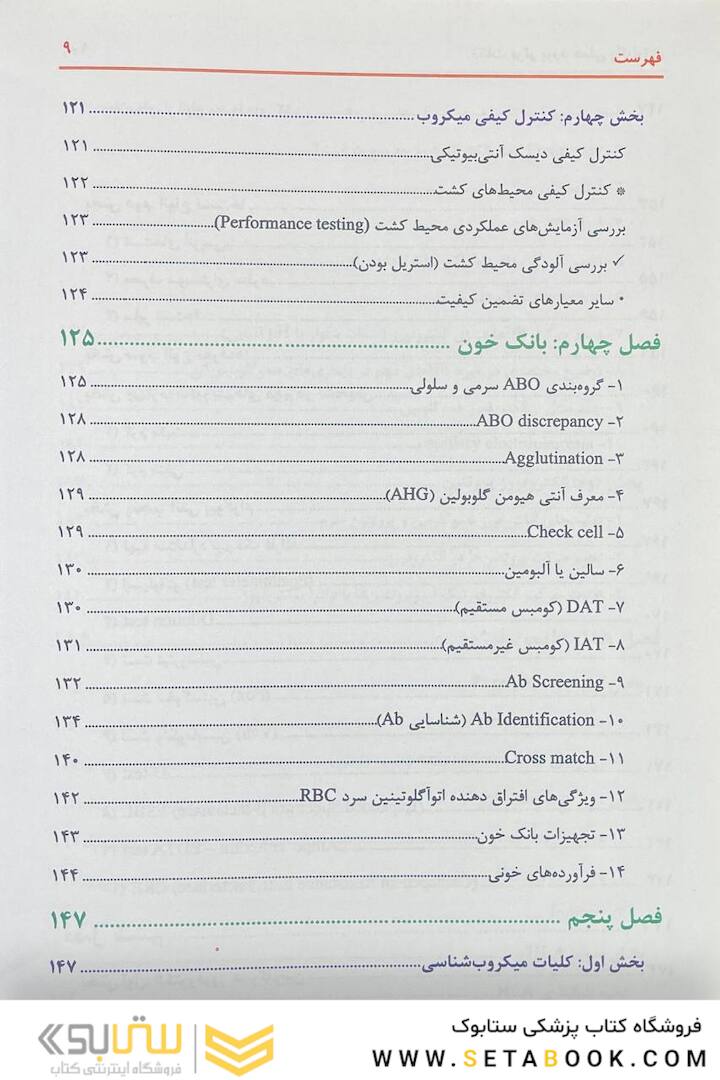 فهرست ۹
بخش چهارم: کنترل کیفی میکروب ۱۲۱
کنترل کیفی دیسک آنتی‌بیوتیکی ۱۲۱
* کنترل کیفی محیط‌های کشت ۱۲۲
بررسی آزمایش‌های عملکردی محیط کشت (Performance testing) ۱۲۳
✓ بررسی آلودگی محیط کشت (استریل بودن) ۱۲۳
• سایر معیارهای تضمین کیفیت ۱۲۴
فصل چهارم: بانک خون ۱۲۵
۱- گروه‌بندی ABO سرمی و سلولی ۱۲۵
۲- ABO discrepancy ۱۲۸
۳- Agglutination ۱۲۸
۴- معرف آنتی هیومن گلوبولین (AHG) ۱۲۹
۵- Check cell ۱۲۹
۶- سالین یا آلبومین ۱۳۰
۷- DAT (کومبس مستقیم) ۱۳۰
۸- IAT (کومبس غیرمستقیم) ۱۳۱
۹- Ab Screening ۱۳۲
۱۰- Ab Identification (شناسایی Ab) ۱۳۴
۱۱- Cross match ۱۴۰
۱۲- ویژگی‌های افتراق دهنده اتوآگلوتینین سرد RBC ۱۴۲
۱۳- تجهیزات بانک خون ۱۴۳
۱۴- فرآورده‌های خونی ۱۴۴
فصل پنجم ۱۴۷
بخش اول: کلیات میکروب‌شناسی ۱۴۷
فروشگاه کتاب پزشکی ستابوک
WWW.SETABOOK.COM
ستابوک
فروشگاه اینترنتی کتاب